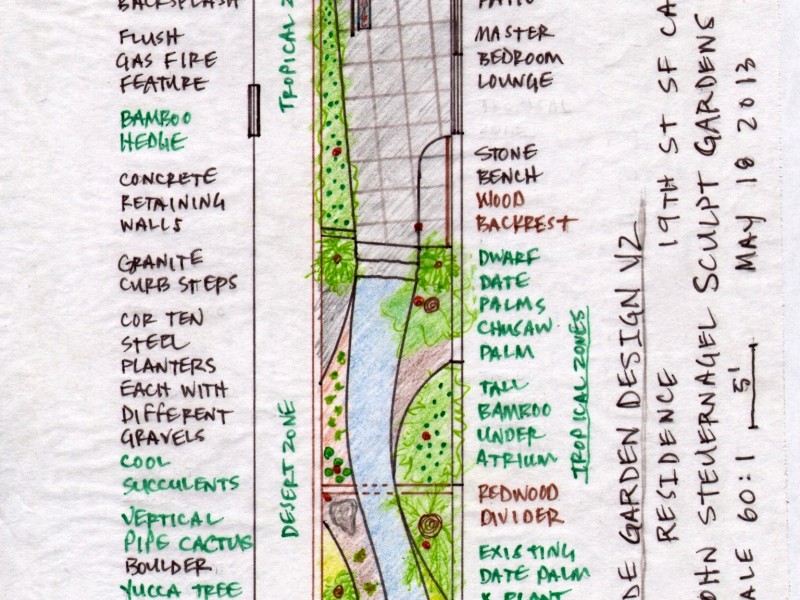 BACKSPLASH
FLUSH
GAS FIRE
FEATURE
BAMBOO
HEDGE
CONCRETE
RETAINING
WALLS
GRANITE
CURB STEPS
COR TEN
STEEL
PLANTERS
EACH WITH
DIFFERENT
GRAVELS
COOL
SUCCULENTS
VERTICAL
PIPE CACTUS
BOULDER
YUCCA TREE
TROPICAL Z
DESERT ZONE
PATIO
MASTER
BEDROOM
LOUNGE
TROPICAL
ZONE
STONE
BENCH
WOOD
BACKREST
DWARF
DATE
PALMS
CHUSAW
PALM
TALL
BAMBOO
UNDER
ATRIUM
REDWOOD
DIVIDER
EXISTING
DATE PALM
& PLANT
TROPICAL ZONES
DE GARDEN DESIGN V2
RESIDENCE 19TH ST SF CA
OHN STEUERNAGEL SCULPT GARDENS
ALE 60:1 5' MAY 18 2013